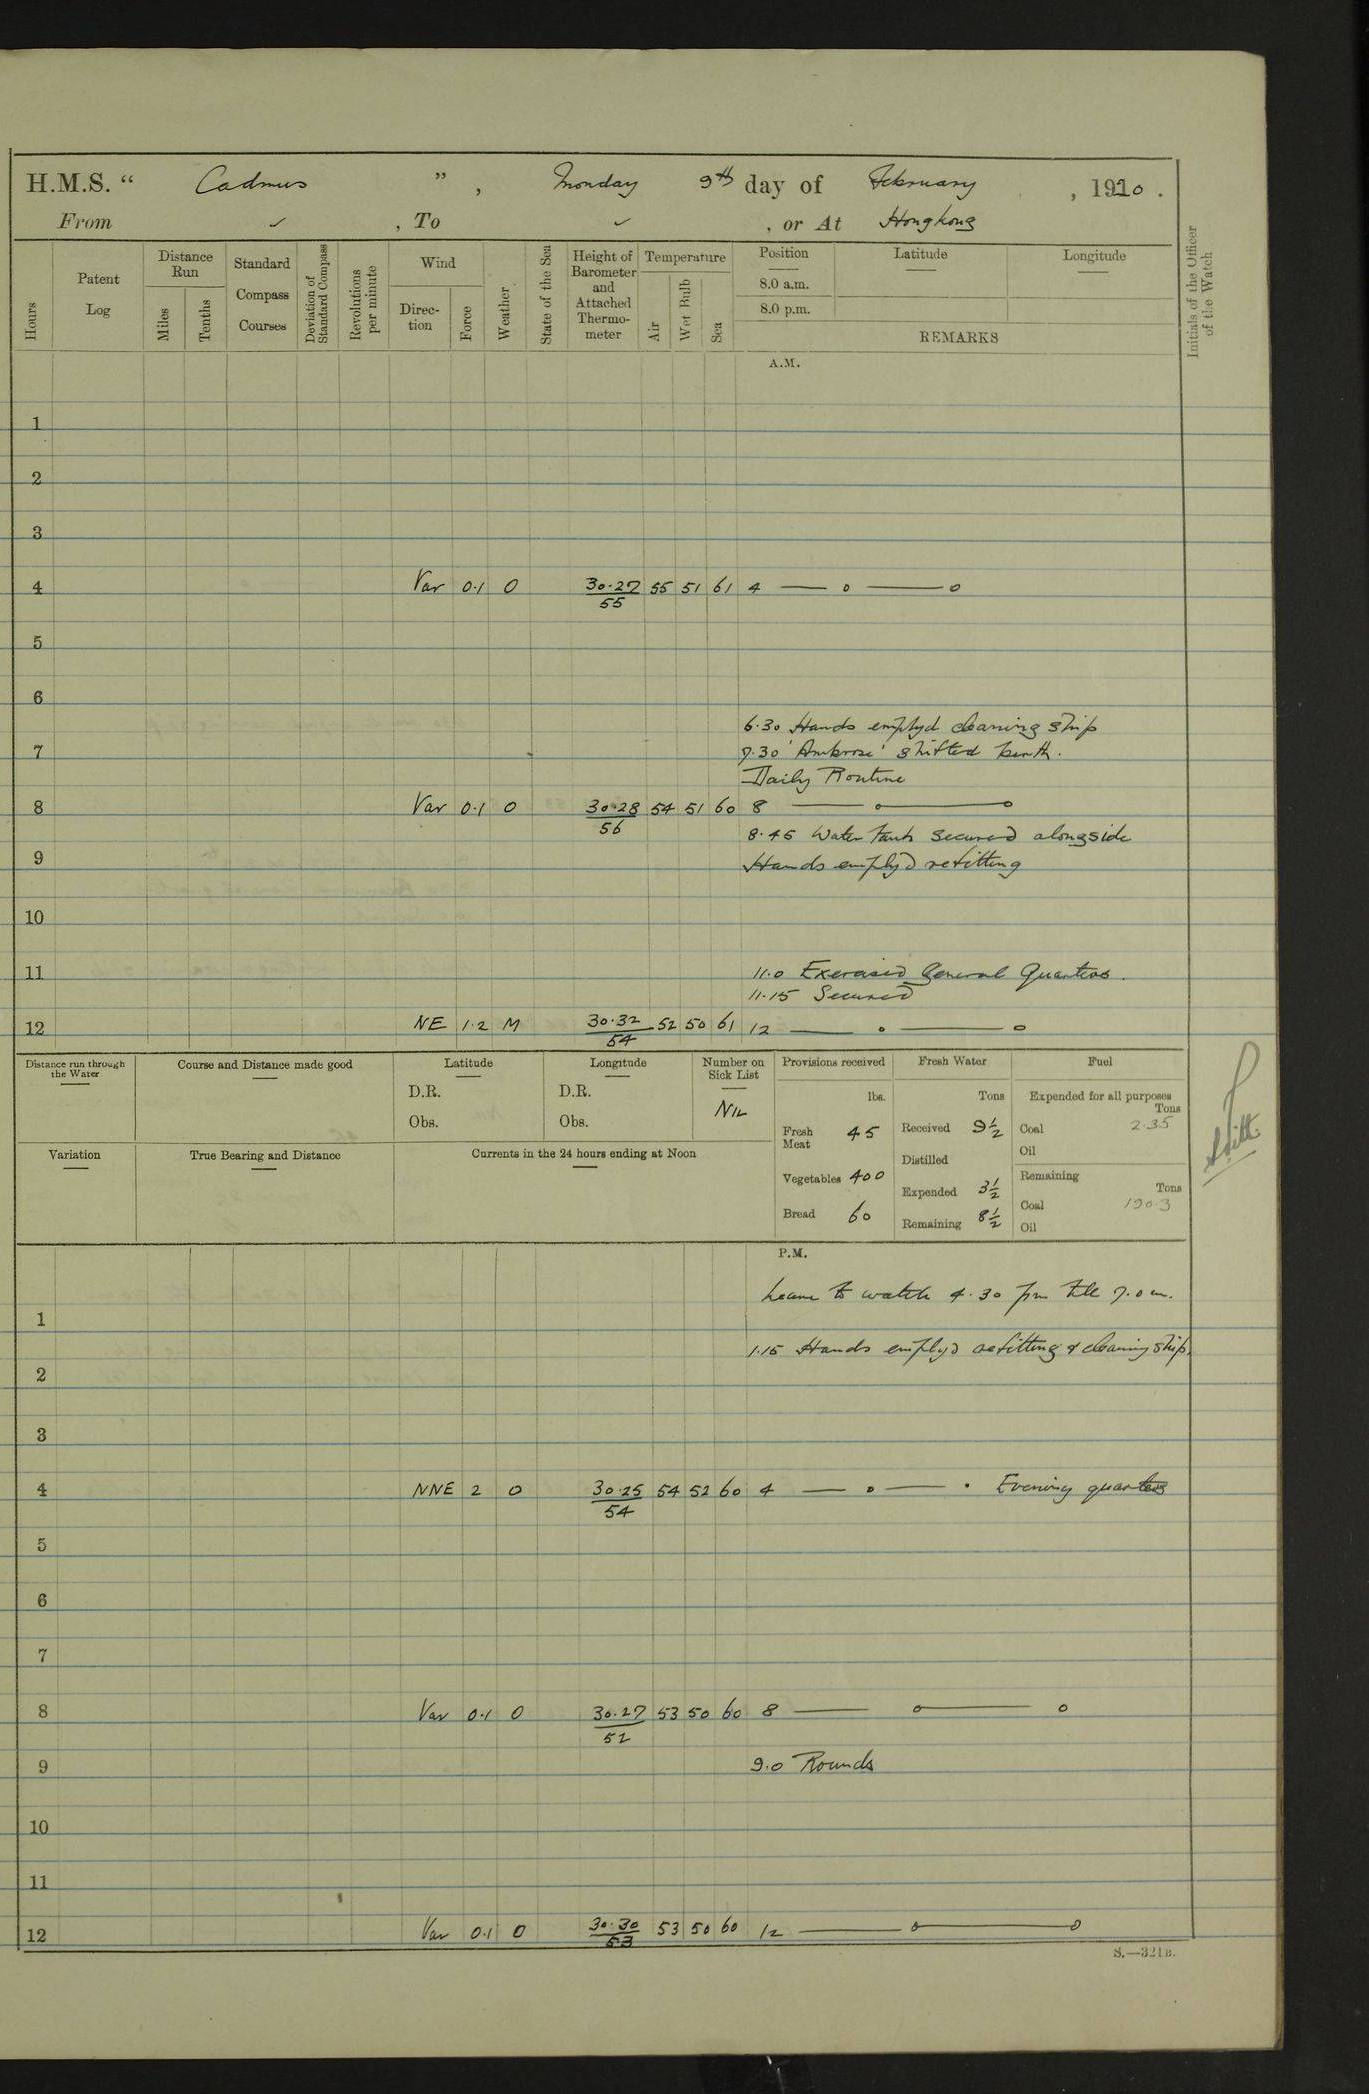 H.M.S. “ Cadmus ” , Monday 9th day of February , 1920 .
From ✓ , To ✓ , or At Hongkong
Hours
Patent Log
Distance Run
Miles
Tenths
Standard Compass Courses
Deviation of Standard Compass
Revolutions per minute
Wind
Direction
Force
Weather
State of the Sea
Height of Barometer and Attached Thermometer
Temperature
Air
Wet Bulb
Sea
Position
8.0 a.m.
8.0 p.m.
Latitude
Longitude
REMARKS
Initials of the Officer of the Watch
A.M.
1
2
3
4 Var 0.1 O 30.27 55 51 61 4
55
5
6
6.30 Hands employd cleaning ship
7 7.30 'Ambrose' shifted berth.
Daily Routine
8 Var 0.1 O 30.28 54 51 60 8
56
8.45 Water tank secured alongside
9 Hands employd refitting
10
11 11.0 Exercised General Quarters.
11.15 Secured
12 NE 1.2 M 30.32 52 50 61 12
54
Distance run through the Water
Course and Distance made good
Latitude
D.R.
Obs.
Longitude
D.R.
Obs.
Number on Sick List
NIL
Provisions received
lbs.
Fresh Meat 45
Vegetables 400
Bread 60
Fresh Water
Tons
Received 9½
Distilled
Expended 3½
Remaining 8½
Fuel
Expended for all purposes
Tons
Coal 2.35
Oil
Remaining
Tons
Coal 190.3
Oil
Variation
True Bearing and Distance
Currents in the 24 hours ending at Noon
P.M.
Leave to watch 4.30 pm till 7.0 am.
1
1.15 Hands employd refitting & cleaning ship.
2
3
4 NNE 2 O 30.25 54 52 60 4 Evening quarters
54
5
6
7
8 Var 0.1 O 30.27 53 50 60 8
52
9 9.0 Rounds
10
11
12 Var 0.1 O 30.30 53 50 60 12
53
S.—321B.